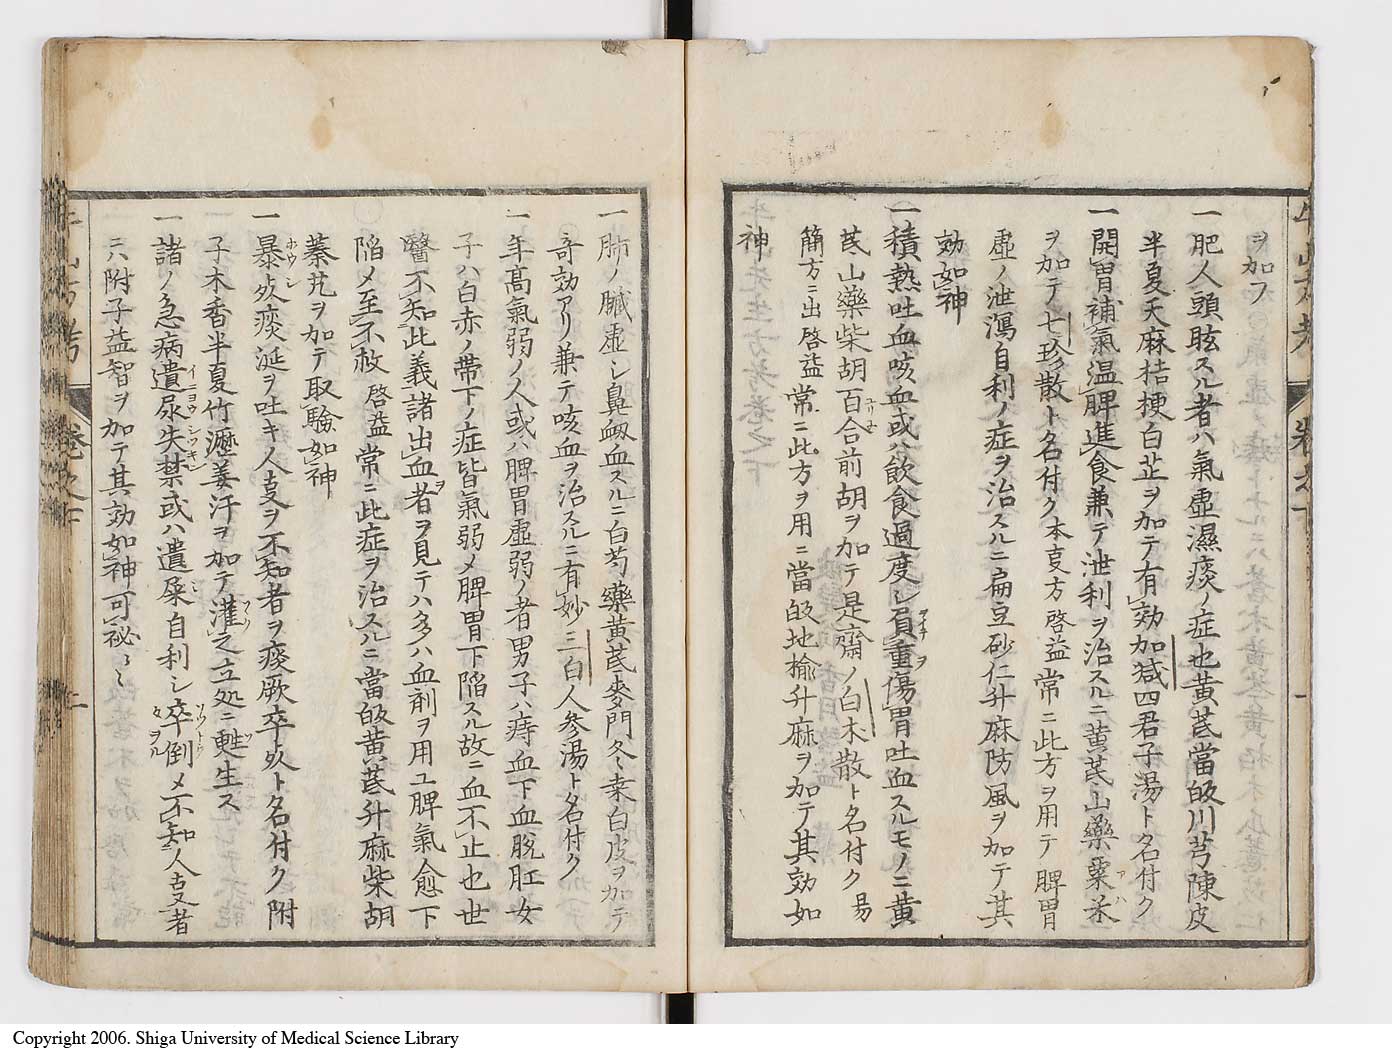 ヲ加フ
一肥人頭眩スル者ハ氣虚濕痰ノ症也黄芪當皈川芎陳皮
半夏天麻桔梗白芷ヲ加テ有効加减四君子湯ト名付ク
一開胃補氣温脾進食兼テ泄利ヲ治スルニ黄芪山藥粟米
ヲ加テ七珍散ト名付ク本㕝方啓益常ニ此方ヲ用テ脾胃
虚ノ泄瀉自利ノ症ヲ治スルニ扁豆砂仁升麻防風ヲ加テ其
効如神
一積熱吐血咳血或ハ飲食過度シ負重傷胃吐血スルモノニ黄
芪山藥柴胡百合前胡ヲ加テ是齋ノ白术散ト名付ク易
簡方ニ出啓益常ニ此方ヲ用ニ當皈地楡升麻ヲ加テ其効如
神
一肺ノ臟虚シ鼻衂血スルニ白芍藥黄芪麥門冬桒白皮ヲ加テ
奇効アリ兼テ咳血ヲ治スルニ有妙三白人參湯ト名付ク
一年髙氣弱ノ人或ハ脾胃虚弱ノ者男子ハ痔血下血脱肛女
子ハ白赤ノ帶下ノ症皆氣弱メ脾胃下陥スル故ニ血不止也世
醫不知此義諸出血者ヲ見テハ多ハ血剤ヲ用ユ脾氣愈下
陥メ至不救啓益常ニ此症ヲ治スルニ當皈黄芪升麻柴胡
蓁艽ヲ加テ取驗如神
一暴㱼痰涎ヲ吐キ人㕝ヲ不知者ヲ痰厥卒㱼ト名付ク附
子木香半夏竹瀝姜汁ヲ加テ灌之立処ニ甦生ス
一諸ノ急病遺尿失禁或ハ遺屎自利シ卒倒メ不知人㕝者
ニハ附子益智ヲ加テ其効如神可祕〻
Copyright 2006. Shiga University of Medical Science Library